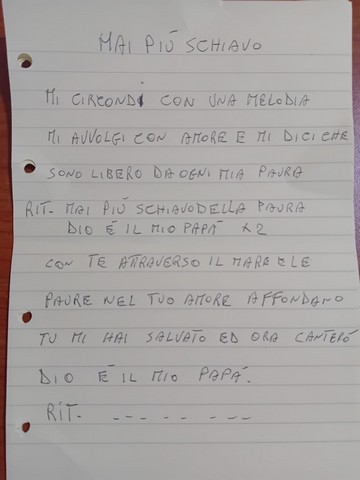 MAI PIÚ SCHIAVO
MI CIRCONDI CON UNA MELODIA
MI AVVOLGI CON AMORE E MI DICI CHE
SONO LIBERO DA OGNI MIA PAURA
RIT- MAI PIÚ SCHIAVO DELLA PAURA
DIO É IL MIO PAPÁ X2
CON TE ATTRAVERSO IL MARE E LE
PAURE NEL TUO AMORE AFFONDANO
TU MI HAI SALVATO ED ORA CANTERÓ
DIO É IL MIO PAPÁ.
RIT- -- -- - ---